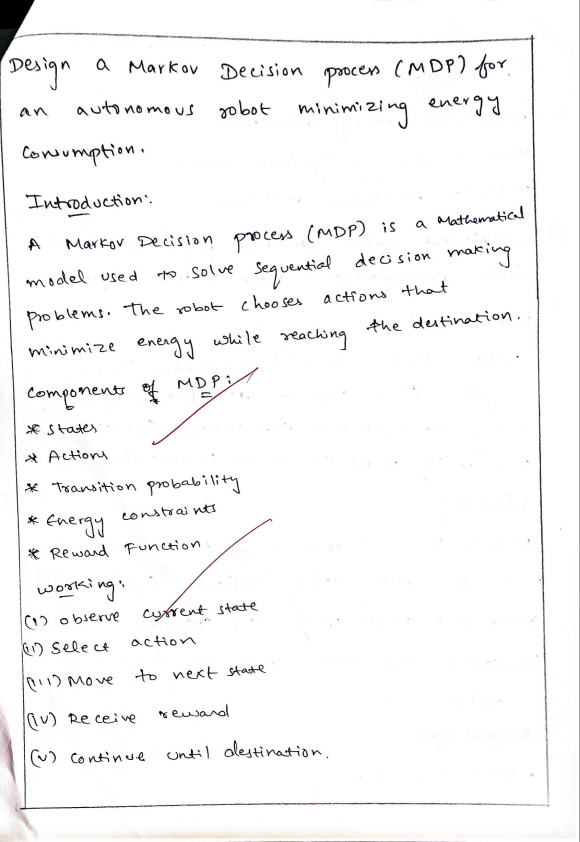 Design a Markov Decision process (MDP) for
an autonomous robot minimizing energy
Consumption.
Introduction:
A Markov Decision process (MDP) is a Mathematical
model used to solve sequential decision making
problems. The robot chooses actions that
minimize energy while reaching the destination.
Components of MDP:
* States
* Actions
* Transition probability
* Energy constraints
* Reward Function
working:
(i) observe current state
(ii) Select action
(iii) Move to next state
(iv) Receive reward
(v) Continue until destination.